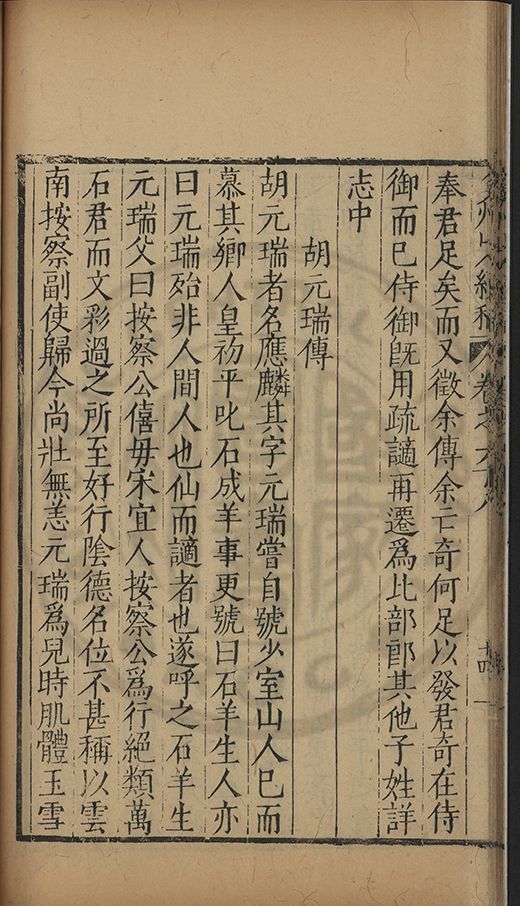 弇州山人續稿 卷之六十八 十四
奉君足矣而又徵余傳余亡奇何足以發君奇在侍
御而已侍御既用疏讁再遷爲比部郎其他子姓詳
志中
胡元瑞傳
胡元瑞者名應麟其字元瑞嘗自號少室山人已而
慕其鄉人皇初平叱石成羊事更號曰石羊生人亦
曰元瑞殆非人間人也仙而讁者也遂呼之石羊生
元瑞父曰按察公僖毋宋宜人按察公爲行絕類萬
石君而文彩過之所至好行陰德名位不甚稱以雲
南按察副使歸今尚壯無恙元瑞爲兒時肌體玉雪